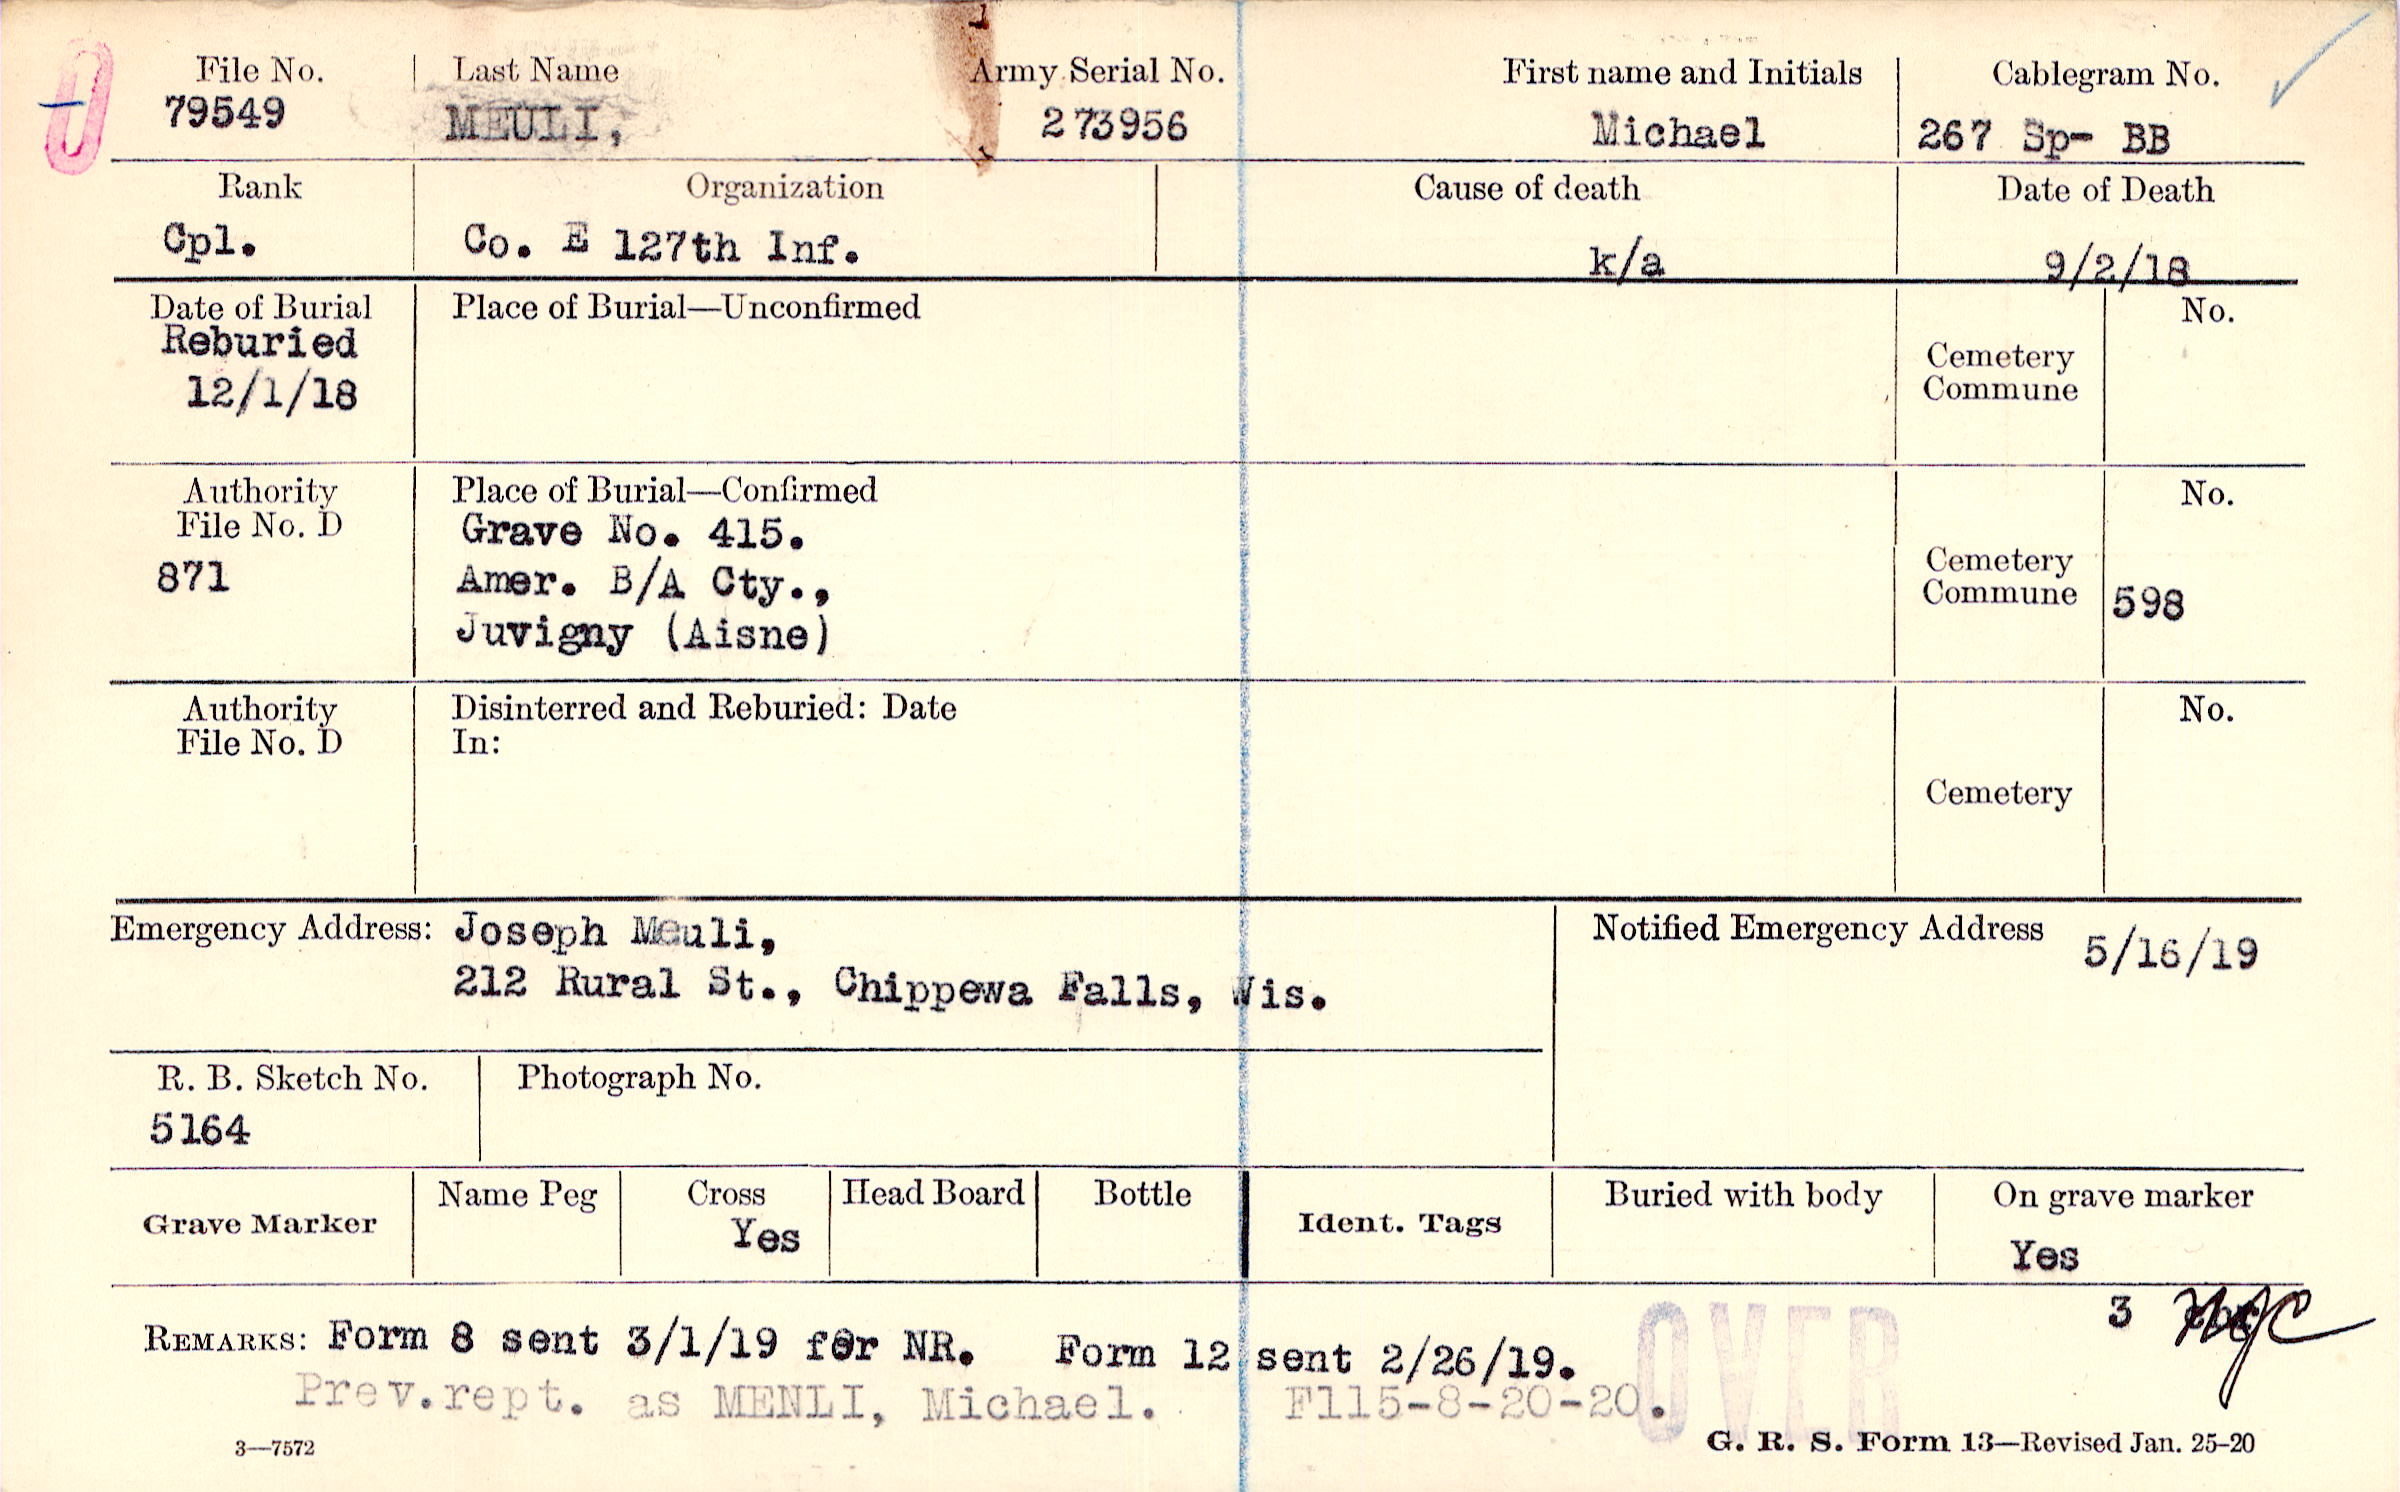 File No. Last Name Army Serial No. First name and Initials Cablegram No.
79549 MEULI, 273956 Michael 267 Sp- BB
Rank Organization Cause of death Date of Death
Cpl. Co. E 127th Inf. k/a 9/2/18
Date of Burial Place of Burial—Unconfirmed No.
Reburied
12/1/18
Cemetery
Commune
Authority Place of Burial—Confirmed No.
File No. D Grave No. 415.
871 Amer. B/A Cty.,
Juvigny (Aisne)
Cemetery
Commune 598
Authority Disinterred and Reburied: Date No.
File No. D In:
Cemetery
Emergency Address: Joseph Meuli,
212 Rural St., Chippewa Falls, Wis.
Notified Emergency Address 5/16/19
R. B. Sketch No. Photograph No.
5164
Grave Marker Name Peg Cross Head Board Bottle Ident. Tags Buried with body On grave marker
Yes Yes
3
REMARKS: Form 8 sent 3/1/19 for NR. Form 12 sent 2/26/19.
Prev.rept. as MENLI, Michael. F115-8-20-20.
OVER
3—7572 G. R. S. Form 13—Revised Jan. 25-20